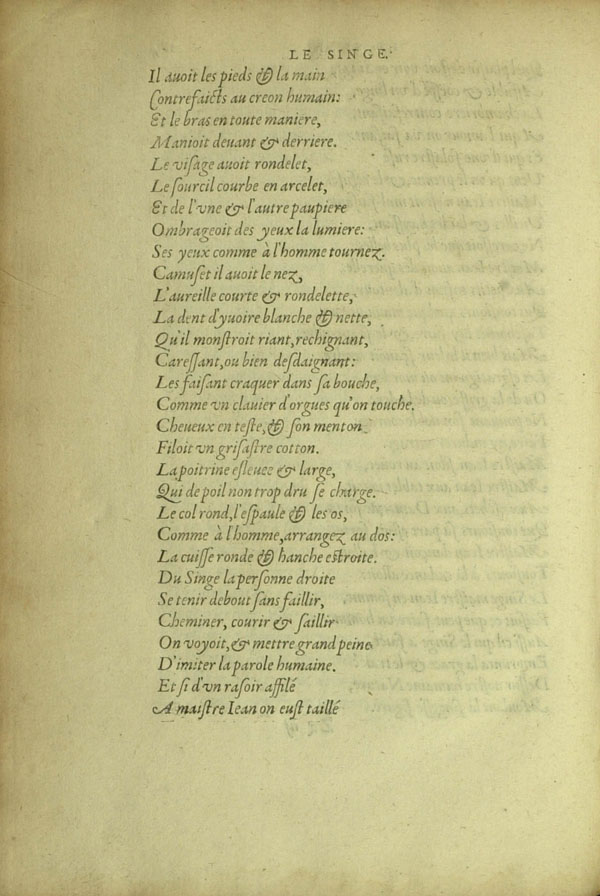 LE SINGE.
Il auoit les pieds & la main
Contrefaicts au creon humain:
Et le bras en toute maniere,
Manioit deuant & derriere.
Le viſage auoit rondelet,
Le ſourcil courbe en arcelet,
Et de l'vne & l'autre paupiere
Ombrageoit des yeux la lumiere:
Ses yeux comme à l'homme tournez.
Camuſet il auoit le nez,
L'aureille courte & rondelette,
La dent d'yuoire blanche & nette,
Qu'il monſtroit riant, rechignant,
Careſſant, ou bien deſdaignant:
Les faiſant craquer dans ſa bouche,
Comme vn clauier d'orgues qu'on touche.
Cheueux en teſte, & ſon menton
Filoit vn griſaſtre cotton.
La poitrine eſleuee & large,
Qui de poil non trop dru ſe charge.
Le col rond, l'eſpaule & les os,
Comme à l'homme, arrangez au dos:
La cuiſſe ronde & hanche eſtroite.
Du Singe la perſonne droite
Se tenir debout ſans faillir,
Cheminer, courir & ſaillir
On voyoit, & mettre grand peine
D'imiter la parole humaine.
Et ſi d'vn raſoir affilé
A maiſtre Iean on euſt taillé